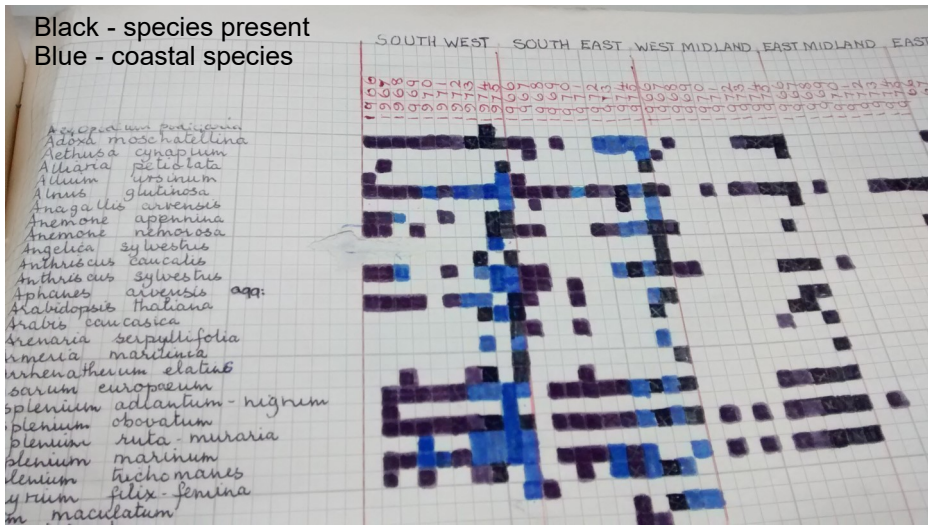 Black - species present
Blue - coastal species
SOUTH WEST SOUTH EAST WEST MIDLAND EAST MIDLAND EAST
1966 1967 1968 1969 1970 1971 1972 1973 1974 1975 1966 1967 1968 1969 1970 1971 1972 1973 1974 1975
Aegopodium podagraria
Adoxa moschatellina
Aethusa cynapium
Alliaria petiolata
Allium ursinum
Alnus glutinosa
Anagallis arvensis
Anemone apennina
Anemone nemorosa
Angelica sylvestus
Anthriscus caucalis
Anthriscus sylvestus
Aphanes arvensis agg:
Arabidopsis thaliana
Arabis caucasica
Arenaria serpyllifolia
rmeria maritinia
rrhenatherum elatius
sarum europaeum
splenium adiantum-nigrum
plenium obovatum
plenium ruta-muraria
plenium marinum
lenium trichomanes
yrium filix-femina
m maculatum